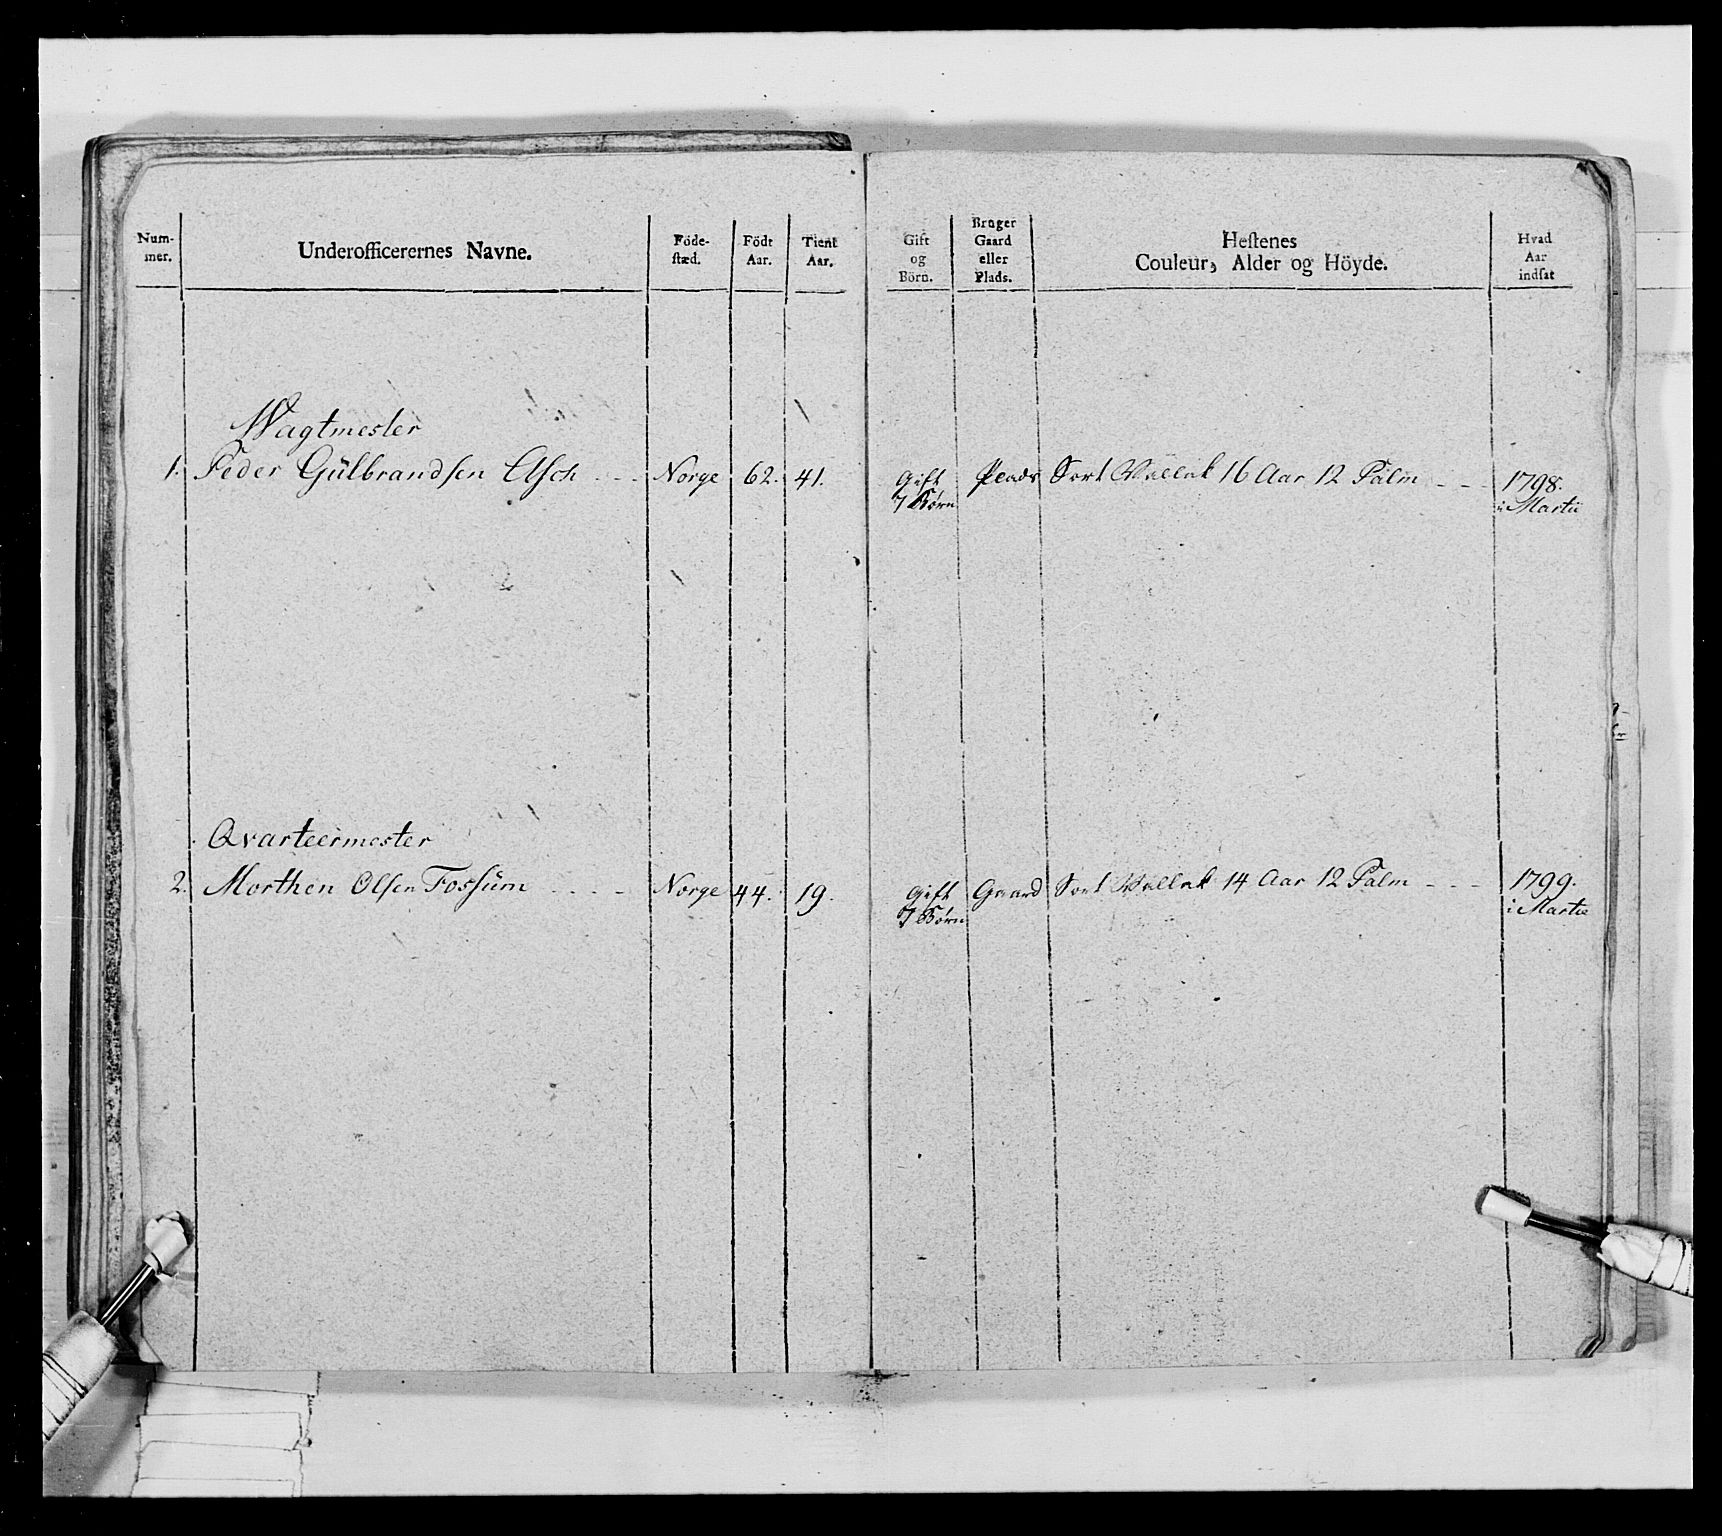 Num-
mer.
Underofficerernes Navne.
Föde-
stæd.
Födt
Aar.
Tient
Aar.
Gift
og
Börn.
Bruger
Gaard
eller
Plads.
Hestenes
Couleur, Alder og Höyde.
Hvad
Aar
indsat
Wagtmester
1. Peder Gülbrandsen Elsch Norge 62. 41. Gift Plads Sort Wallak 16 Aar 12 Palm 1798.
7 Børn i Martii
Qvarteermester
2. Morthen Olsen Fossum Norge 44. 19. Gift Gaard Sort Wallak 14 Aar 12 Palm 1799.
7 Børn i Martii